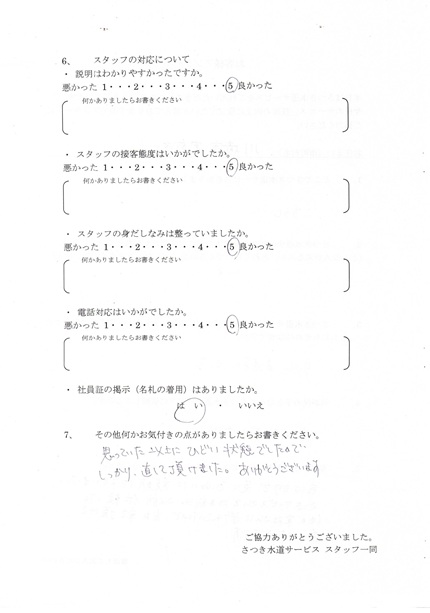 6、 スタッフの対応について
・ 説明はわかりやすかったですか。
悪かった 1・・・2・・・3・・・4・・・5 良かった
何かありましたらお書きください
・ スタッフの接客態度はいかがでしたか。
悪かった 1・・・2・・・3・・・4・・・5 良かった
何かありましたらお書きください
・ スタッフの身だしなみは整っていましたか。
悪かった 1・・・2・・・3・・・4・・・5 良かった
何かありましたらお書きください
・ 電話対応はいかがでしたか。
悪かった 1・・・2・・・3・・・4・・・5 良かった
何かありましたらお書きください
・ 社員証の掲示（名札の着用）はありましたか。
は い ・ いいえ
7、 その他何かお気付きの点がありましたらお書きください。
思っていた以上にひどい状態でしたので
しっかり、直して頂けました。ありがとうございます
ご協力ありがとうございました。
さつき水道サービス スタッフ一同